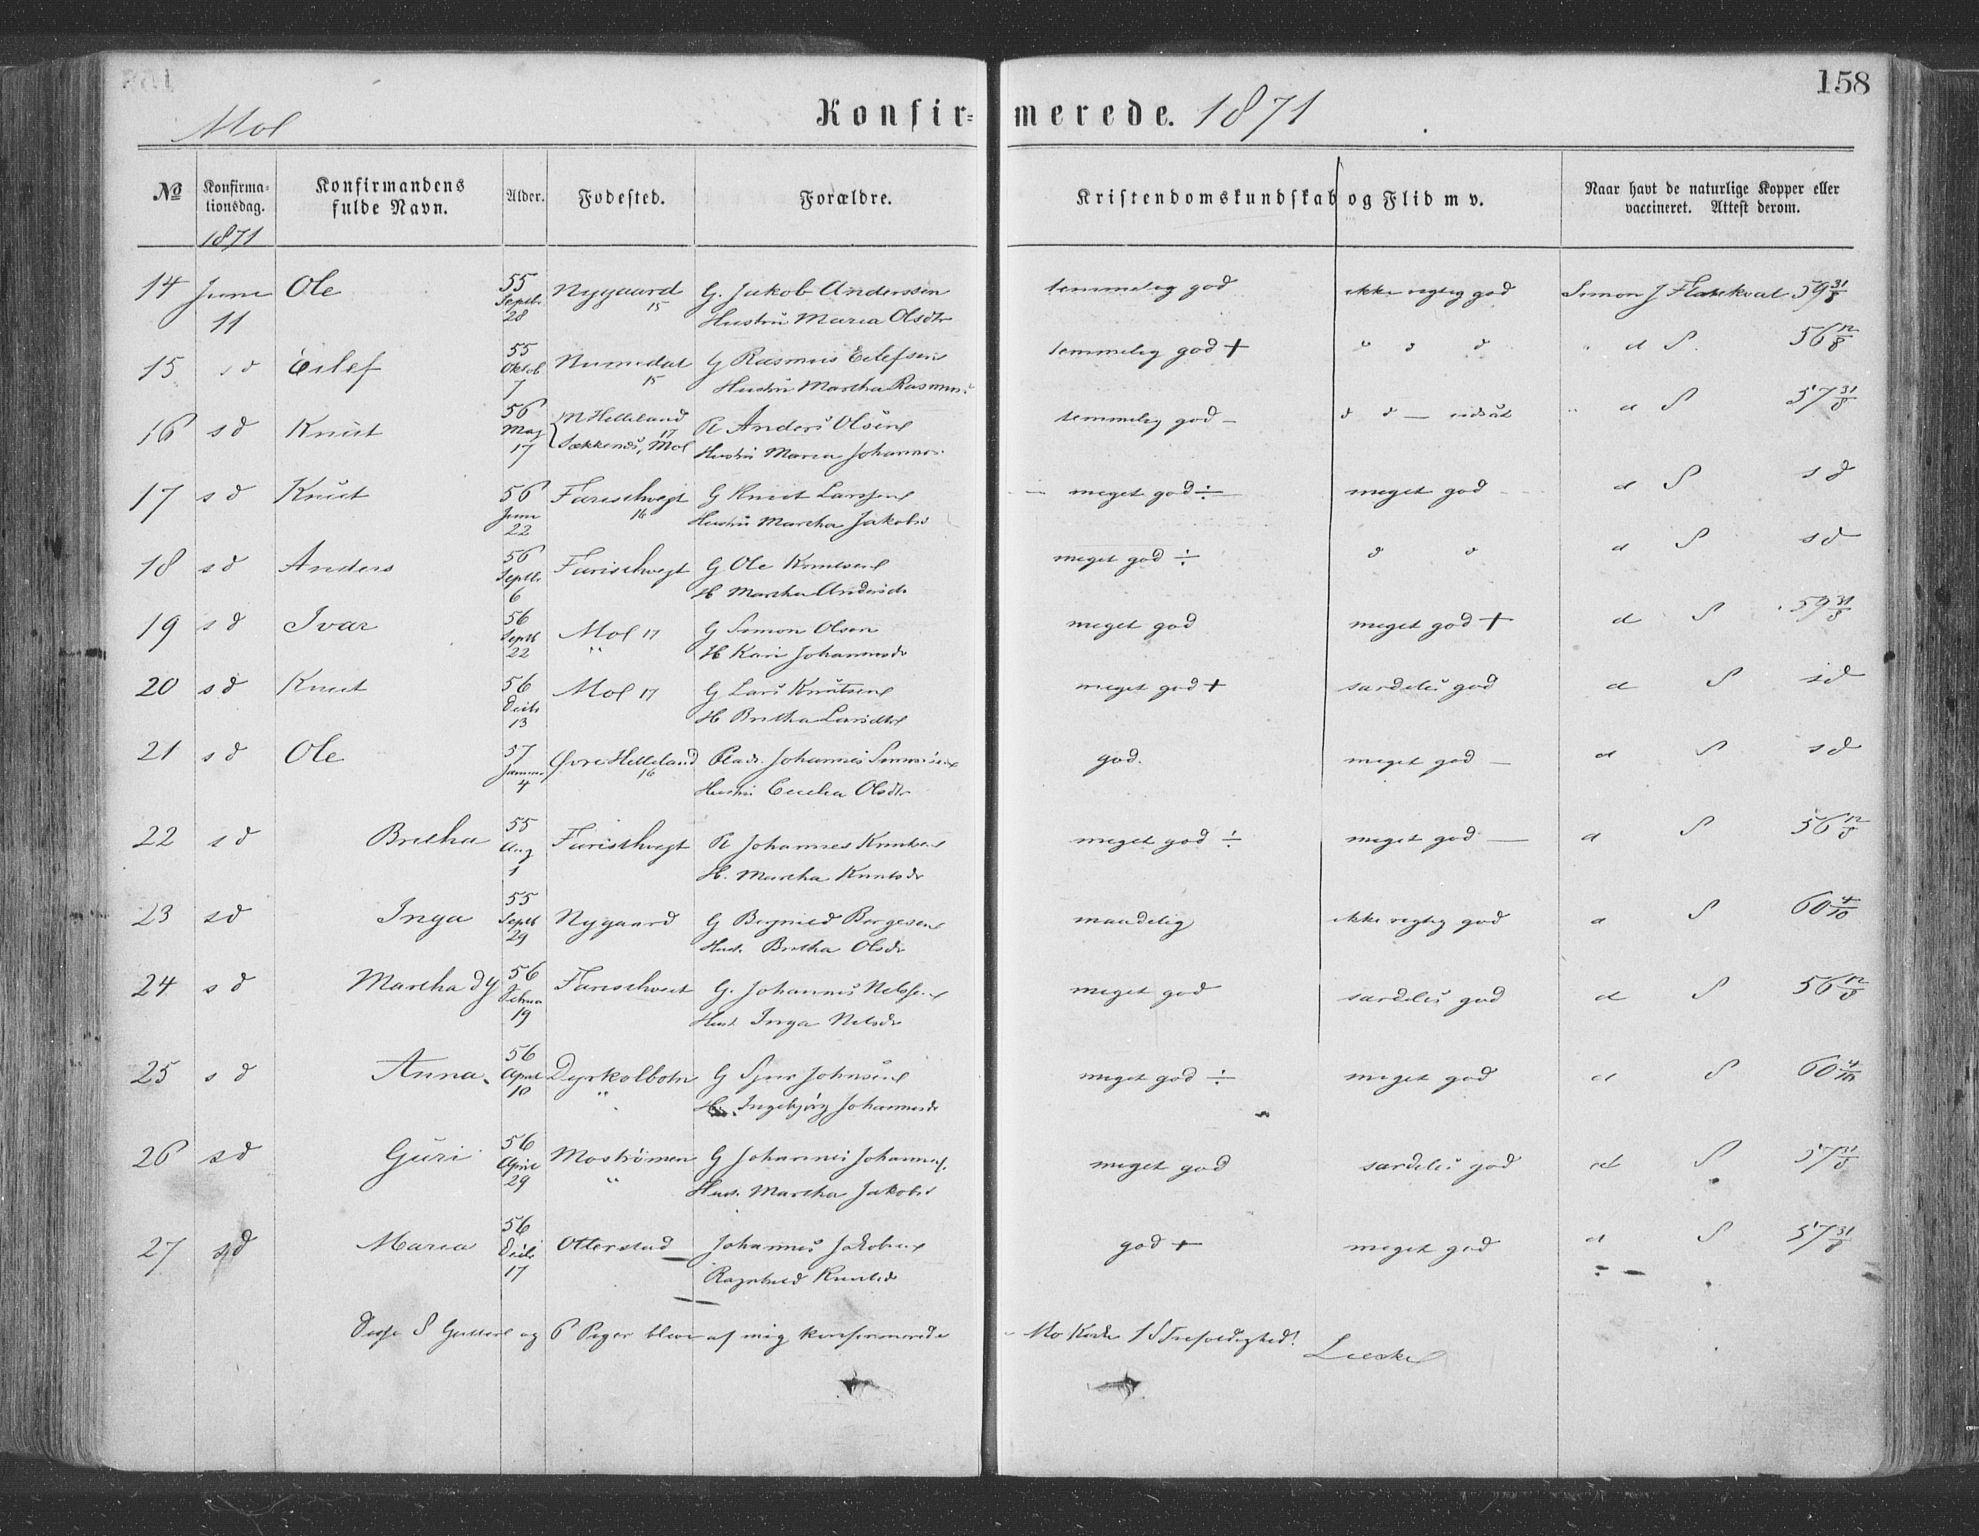 158
Mol
Konfir= merede. 1871
No Konfirma= Konfirmandens Alder. Fodested. Forældre. Kristendomskundskab og Flid m v. Naar havt de naturlige Kopper eller
tionsdag. fulde Navn. vaccineret. Attest derom.
1871
14 Juni Ole 55 Nygaard G. Jakob Anderssen temmelig god ikke rigtig god Simon J 59 31/8
11 Septb 28 15 Hustru Maria Olsdtr
15 sd Eilef 55 Numedal G Rasmus Eilefsen temmelig god + d d d d S. 56 12/8
Oktob 7 15 Hustru Martha Rasmus
16 sd Knut 56 M Helleland Anders Olsen temmelig god - d d d S 57 31/8
Maj 17 17 Sækkenes, Mol Hustru Maria Johannes
17 sd Knut 56 Faristhveit G Knut Larssen meget god ÷ meget god d S sd
Juni 22 16 Hustru Martha Jakobs
18 sd Anders 56 Faristhveit G Ole Knutsen meget god ÷ d d d S sd
Septb 6 H Martha Andersdr
19 sd Ivar 56 Mol 17 G Simon Olsen meget god meget god + d S 59 31/8
Septb 22 " H Kari Johannesdr
20 sd Knut 56 Mol 17 G Lars Knutsen meget god + særdeles god d S sd
Decb 13 H Britha Larsdtr
21 sd Ole 57 Øvre Helleland Johannes Simonsen god. meget god d S sd
Januar 4 16 Hustru Cecilia Olsdtr
22 sd Britha 55 Faristhveit Johannes Knutsen meget god ÷ meget god d S 56 12/8
Aug 1 H. Martha Knutsdr
23 sd Inga 55 Nygaard G Børgesen maadelig ikke rigtig god d S 60 4/10
Septb 29 Hust. Britha Olsdr
24 sd Martha 56 Faristhveit G. Johannes Nilssen meget god særdeles god d S 56 12/8
19 Hust. Inga Nilsdr
25 sd Anna 56 Dyrkolbotn G Johnsen meget god ÷ meget god d S 60 4/10
April 10 " H. Ingebjörg Johannesdr
26 sd Guri 56 Moströmen G Johannes Johannes. meget god særdeles god d S 57 31/8
April 29 " Hust. Martha Jakobs
27 sd Maria 56 Otterstad Johannes Jakobsen god + meget god d S 57 31/8
Decb 17 Ragnhild Knutsdr
Disse 8 Gutter og 6 Piger bleve af mig konfirmerede i Mo Kirke